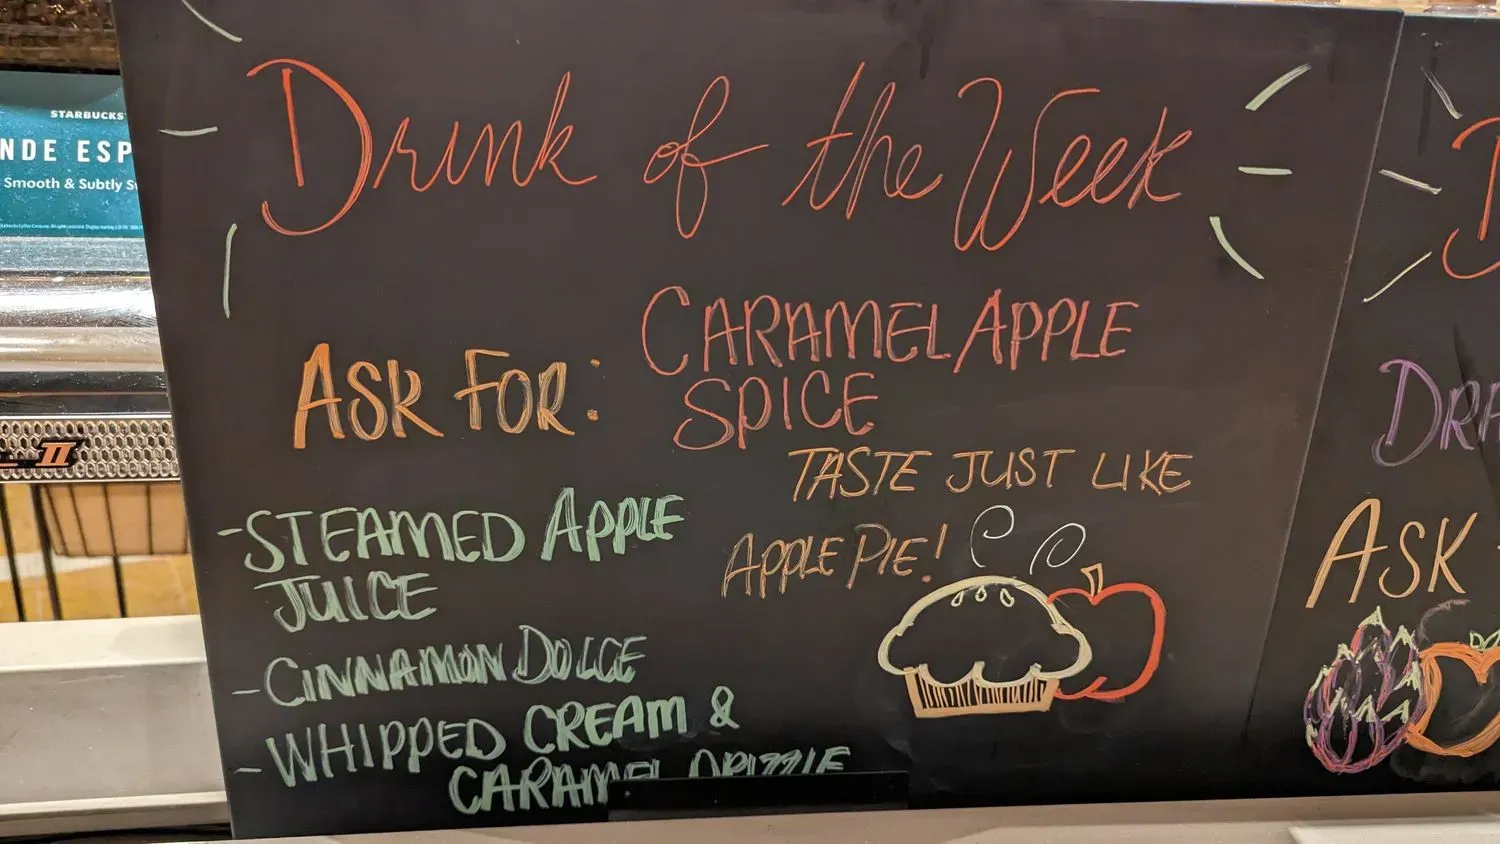 STARBUCKS
NDE ESP
Smooth & Subtly
II
Drink of the Week
ASK FOR: CARAMEL APPLE
SPICE
TASTE JUST LIKE
APPLE PIE!
-STEAMED APPLE
JUICE
-CINNAMON DOLCE
-WHIPPED CREAM &
CARAMEL DRIZZLE
D
DRA
ASK